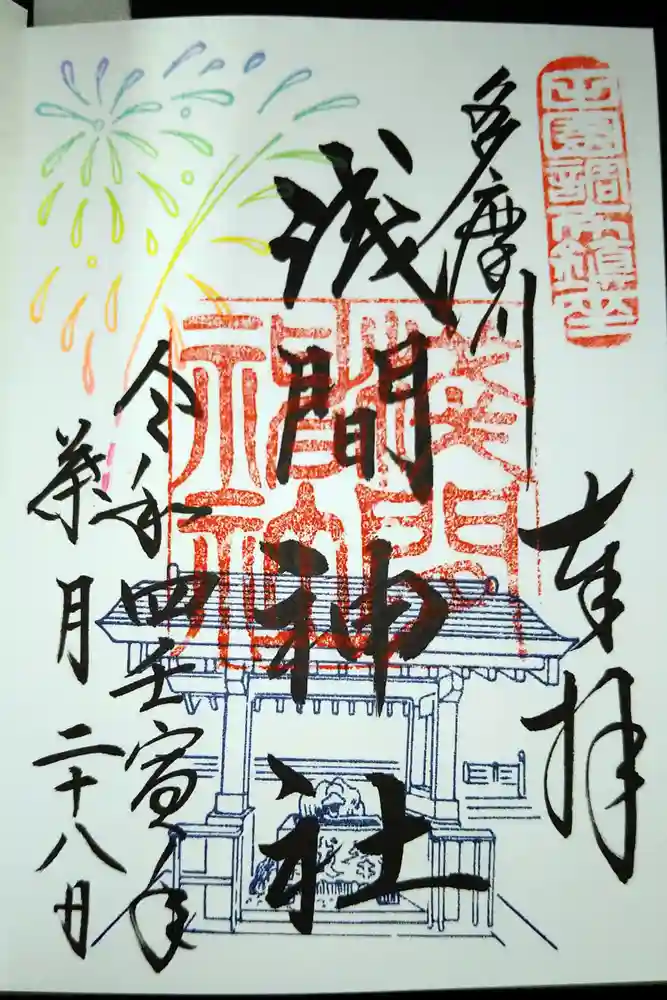 田園調布鎮座
奉拝
多摩川
浅間神社
令和四壬寅年
葉月二十八日